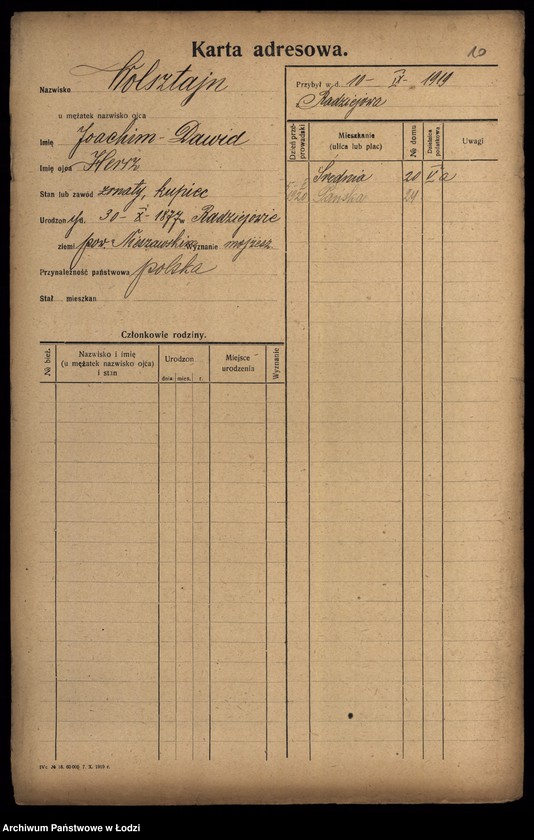 Karta adresowa.
10
Nazwisko Wolsztajn
u mężatek nazwisko ojca
Imię Joachim-Dawid
Imię ojca Hersz
Stan lub zawód żonaty, kupiec
Urodzon y/a. 30-X-1877 w Radziejowie
ziemi pow. Nieszawskim Wyznanie mojżesz.
Przynależność państwowa polska
Stał mieszkan
Członkowie rodziny.
№ bież.
Nazwisko i imię
(u mężatek nazwisko ojca)
i stan
Urodzon
dnia mies. r.
Miejsce
urodzenia
Wyznanie
Przybył w d. 10- IX- 1919
z Radziejowa
Dzień prze-
prowadzki
Mieszkanie
(ulica lub plac)
№ domu
Dzielnica
podatkowa
Uwagi
Średnia 20 a
1920 Pańska 24
7. X. 1919 r.
Archiwum Państwowe w Łodzi